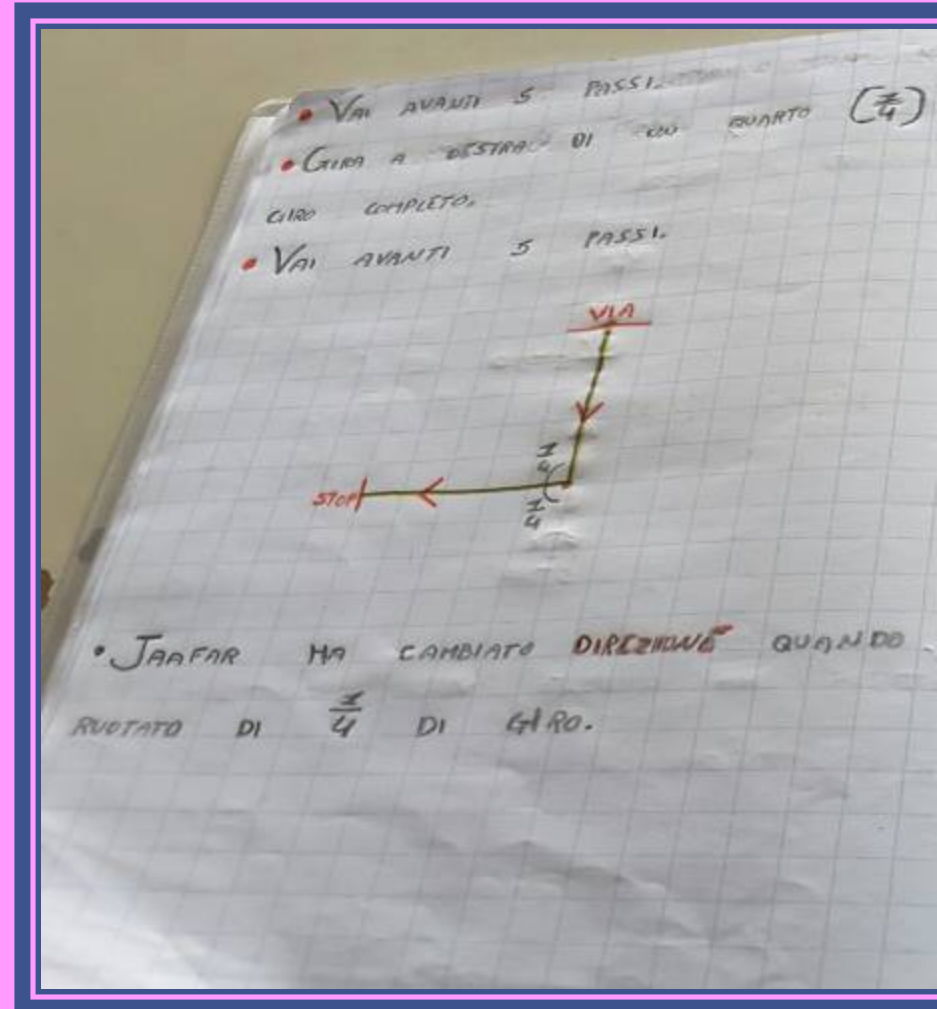 • VAI AVANTI 5 PASSI.
• GIRA A DESTRA DI UN QUARTO (1/4)
GIRO COMPLETO.
• VAI AVANTI 5 PASSI.
VIA
1/4
STOP
1/4
• JAAFAR HA CAMBIATO DIREZIONE QUANDO
RUOTATO DI 1/4 DI GIRO.